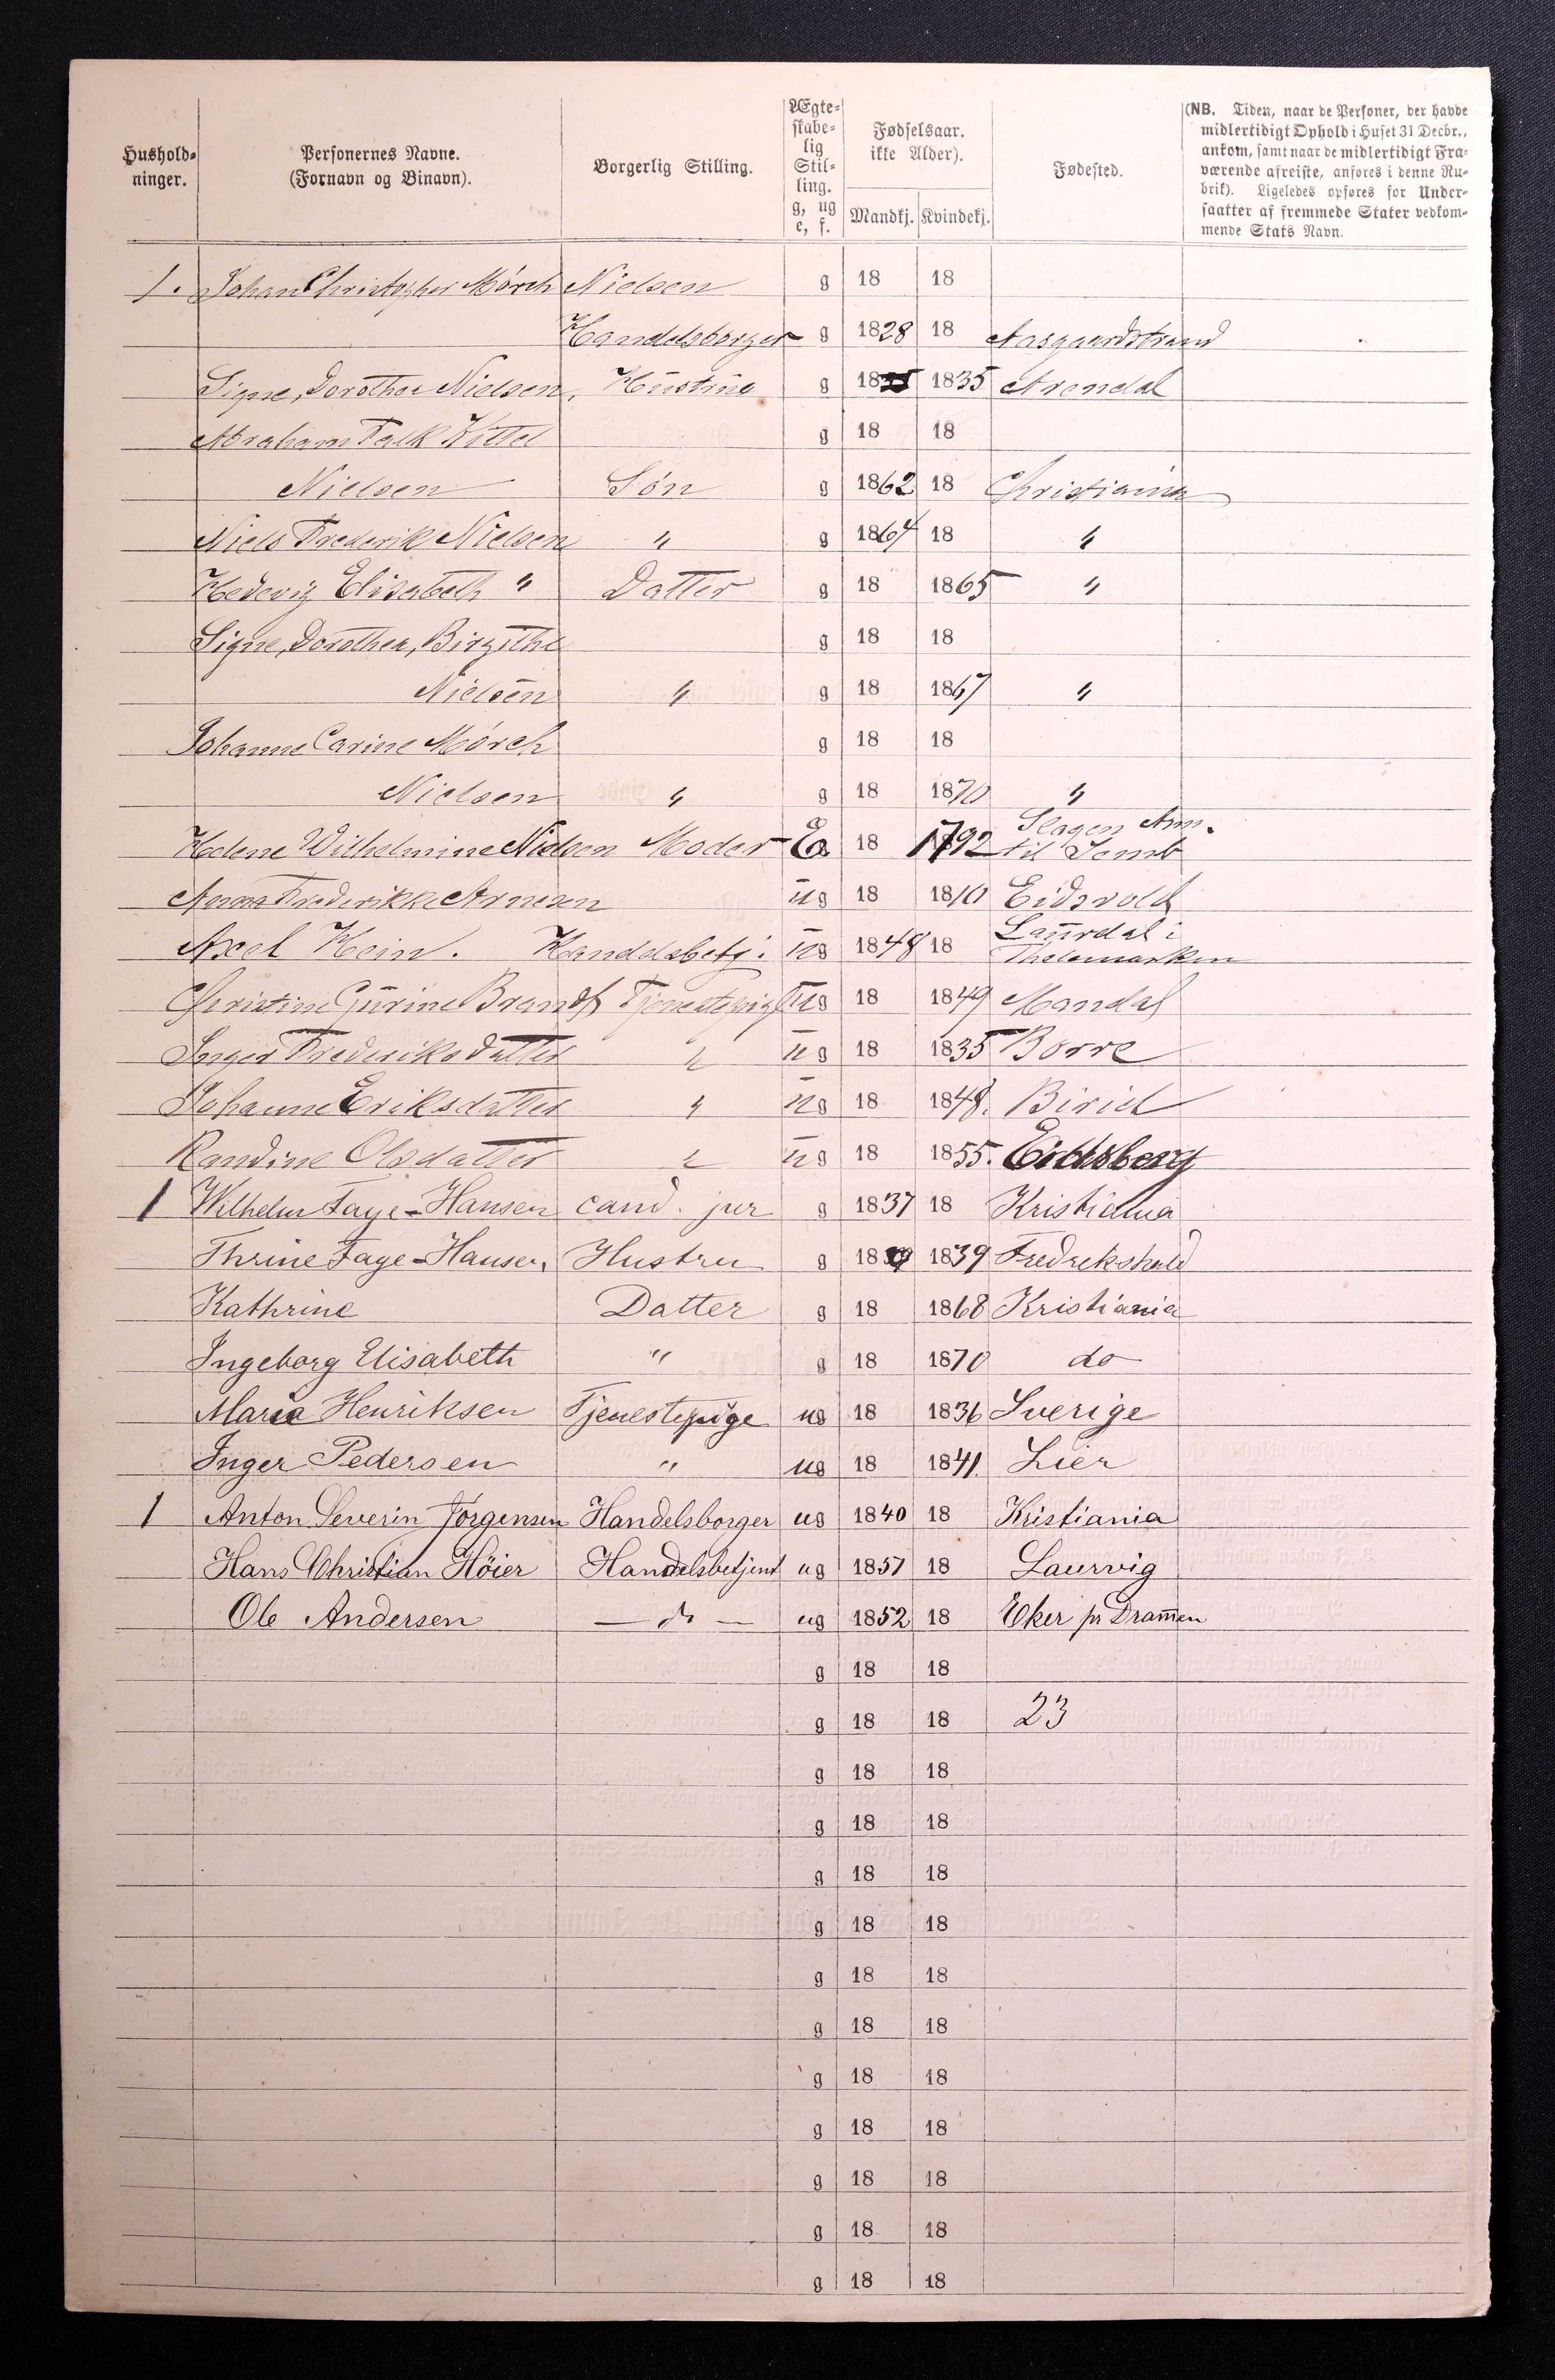 Hushold-
ninger.
Personernes Navne.
(Fornavn og Binavn).
Borgerlig Stilling.
Ægte-
skabe-
lig
Stil-
ling.
g, ug
e, f.
Fødselsaar.
ikke Alder).
Mandkj. Kvindekj.
Fødested.
(NB. Tiden, naar de Personer, der havde
midlertidigt Ophold i Huset 31 Decbr.,
ankom, samt naar de midlertidigt Fra-
værende afreiste, anføres i denne Ru-
brik). Ligeledes opføres for Under-
saatter af fremmede Stater vedkom-
mende Stats Navn.
1. Johan Christopher Mörch Nielsen g 18 18
Handelsborger g 1828 18 Aasgaardstrand
Signe, Dorothea Nielsen, Hustru g 18 1835 Arendal
Abraham Falk Kittel g 18 18
Nielsen Sön g 1862 18 Christiania
Niels Frederik Nielsen " g 1864 18 "
Hedevig Elisabeth " Datter g 18 1865 "
Signe, Dorothea, Birgithe g 18 18
Nielsen " g 18 1867 "
Johanne Carine Mörch g 18 18
Nielsen " g 18 1870 "
Helene Wilhelmine Nielsen Moder E 18 1792 Slagen Ann.
til Semb
Anna Frederikke Arnesen ug 18 1810 Eidsvold
Axel Hein. Handelsbetj: ug 1848 18 Laurdal i
Thelemarken
Christine Gurine Brandt Tjenestepige ug 18 1849 Mandal
Inger Frederiksdatter " ug 18 1835 Borre
Johanne Eriksdatter " ug 18 1848. Birid
Randine Olsdatter " ug 18 1855. Eidsberg
1 Wilhelm Faye-Hansen cand. jur g 1837 18 Kristiania
Thrine Faye-Hansen, Hustru g 18 1839 Fredrikshald
Kathrine Datter g 18 1868 Kristiania
Ingeborg Elisabeth " g 18 1870 do
Maria Henriksen Tjenestepige ug 18 1836 Sverige
Inger Pedersen " ug 18 1841. Lier
1 Anton Severin Jörgensen Handelsborger ug 1840 18 Kristiania
Hans Christian Höier Handelsbetjent ug 1857 18 Laurvig
Ole Andersen — do — ug 1852 18 Eker pr Dram̄en
g 18 18
g 18 18 23
g 18 18
g 18 18
g 18 18
g 18 18
g 18 18
g 18 18
g 18 18
g 18 18
g 18 18
g 18 18
g 18 18